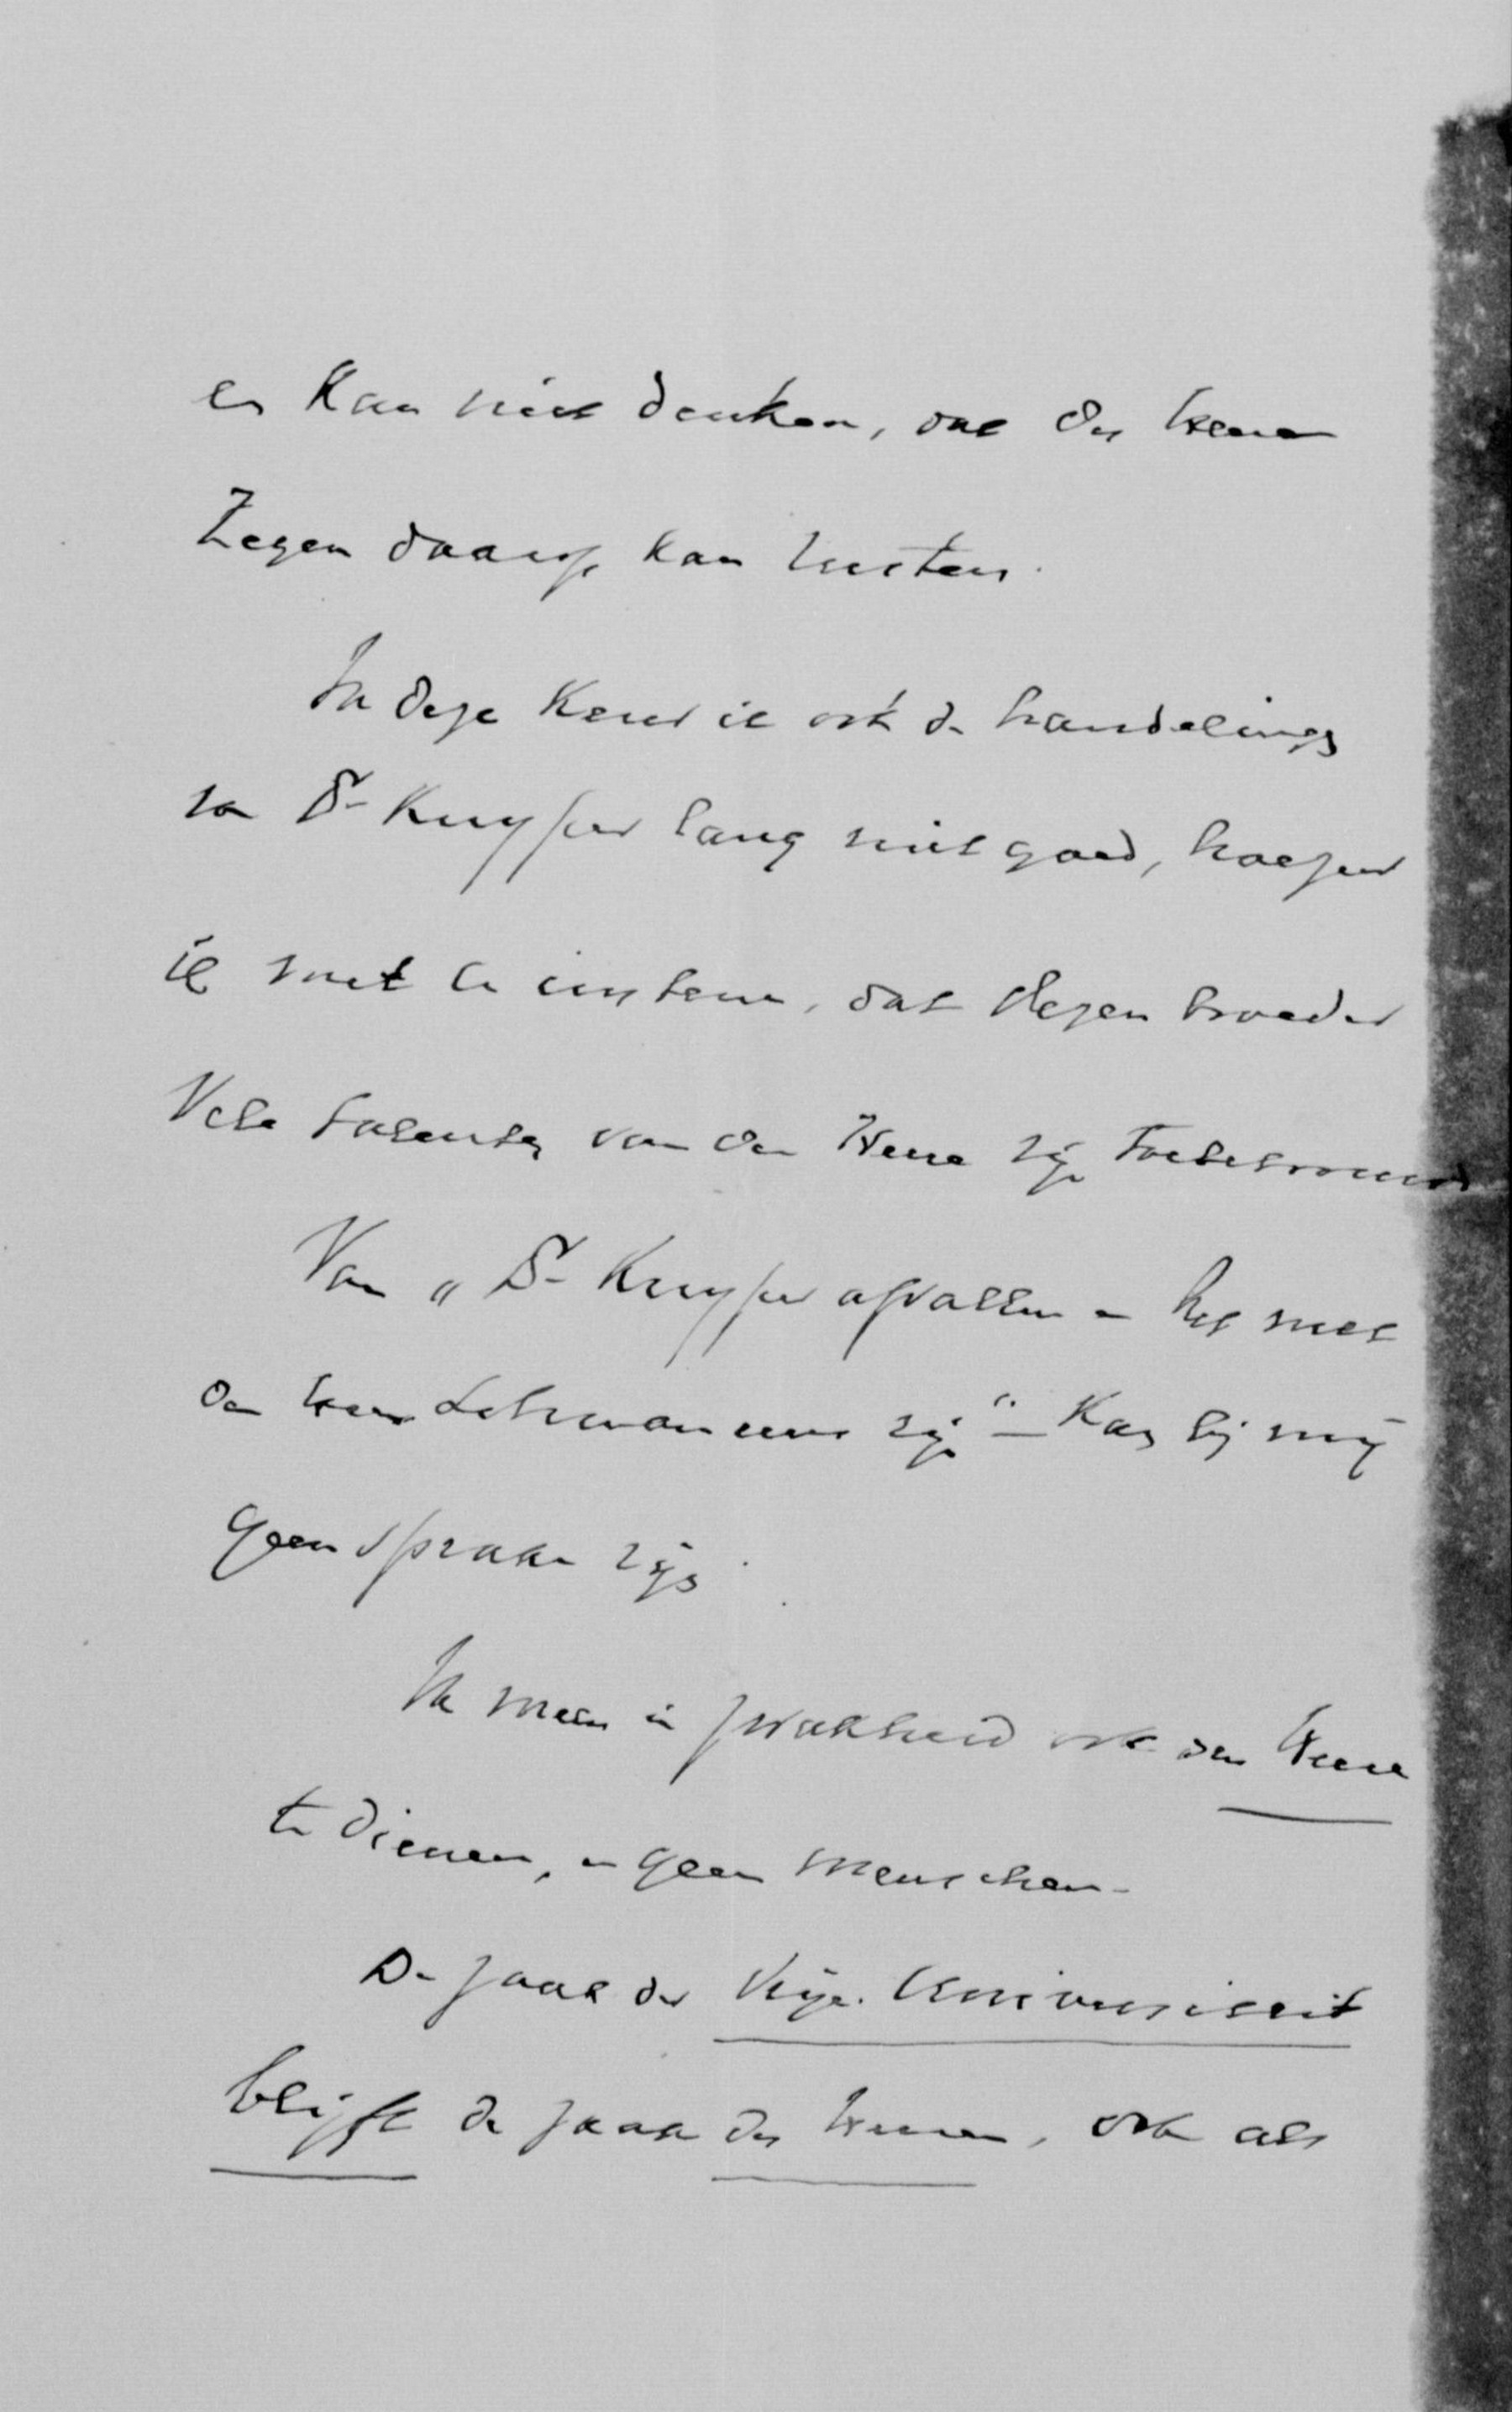 en kan niet denken, dat des Heeren
Zegen daarop kan rusten.
In deze keur ik ook de handelingen
van Dr Kuyper lang niet goed, hoezeer
ik moet erkennen, dat dezen broeder
Vele talenten van den Heere zijn toebetrouwd
Van „Dr Kuyper afvallen – het met
den heer Lohman eens zijn“ – kan bij mij
geen sprake zijn.
Ik meen in zwakheid ook den Heere
te dienen, en geen menschen.
De zaak der Vrije Universiteit
blijft de zaak des Heeren, ook als